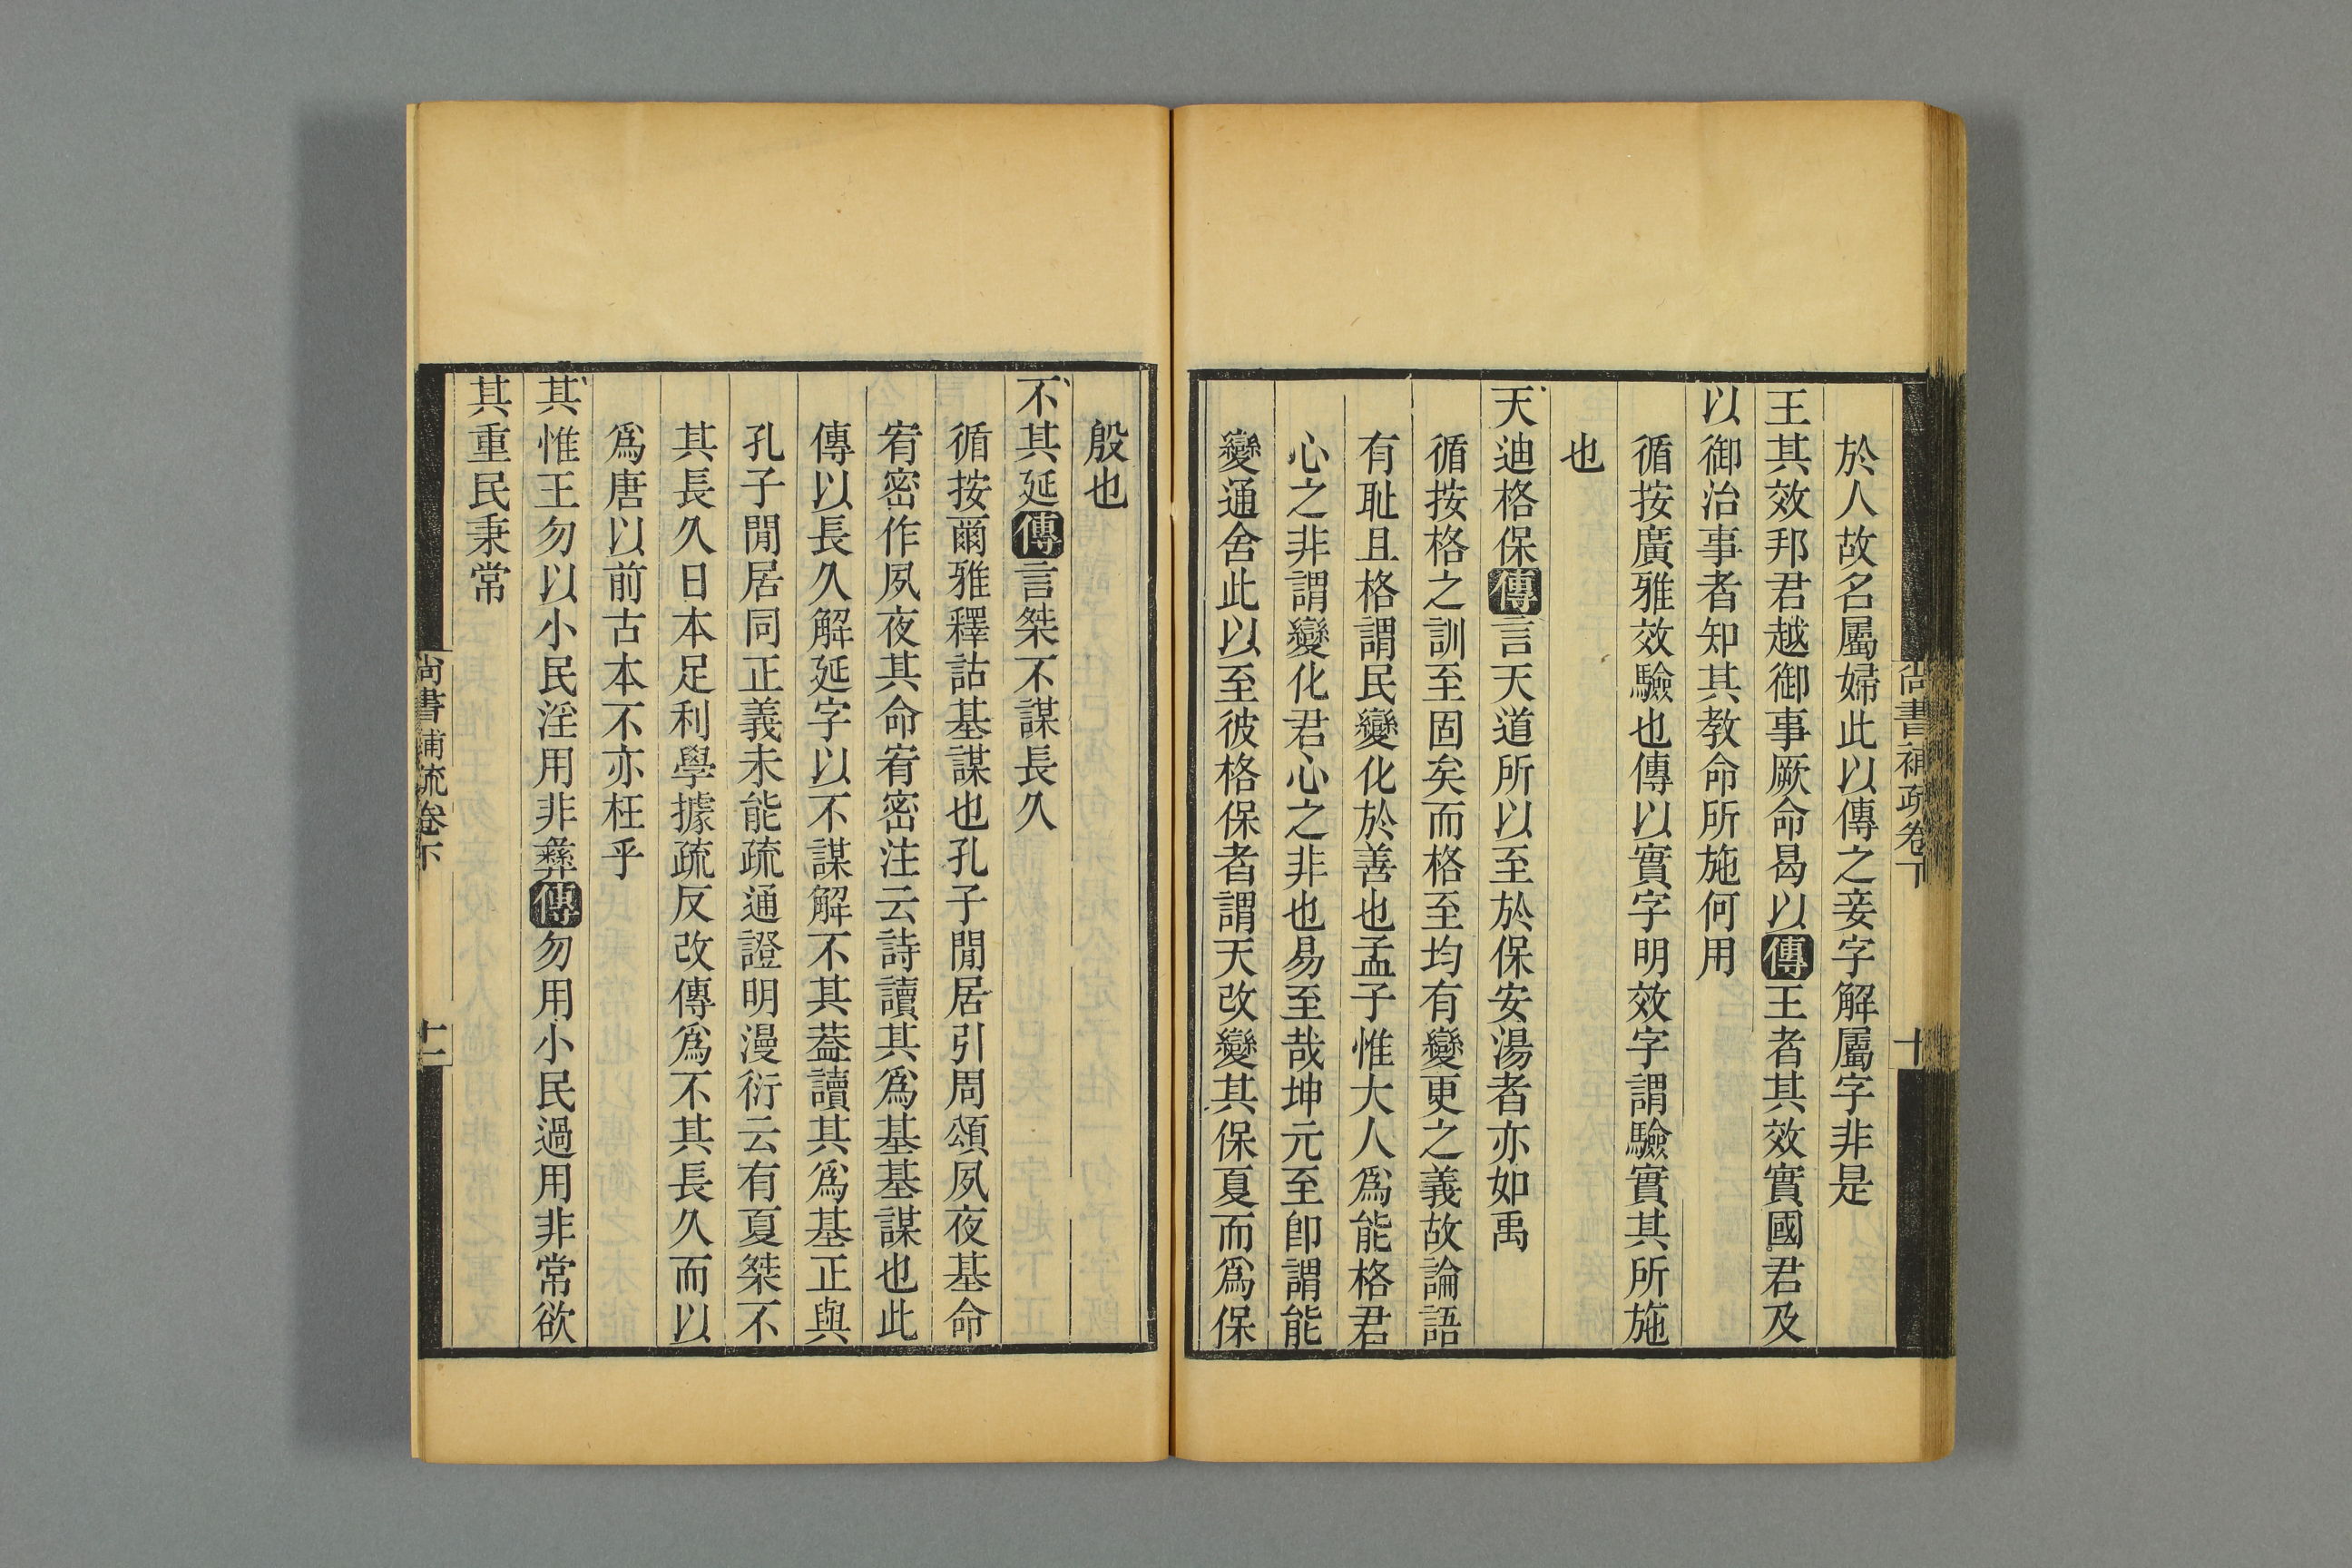 尚書補疏卷下
十
於人故名屬婦此以傳之妾字解屬字非是
王其效邦君越御事厥命曷以傳王者其效實國君及
以御治事者知其教命所施何用
循按廣雅效驗也傳以實字明效字謂驗實其所施
也
天迪格保傳言天道所以至於保安湯者亦如禹
循按格之訓至固矣而格至均有變更之義故論語
有耻且格謂民變化於善也孟子惟大人爲能格君
心之非謂變化君心之非也易至哉坤元至卽謂能
變通舍此以至彼格保者謂天改變其保夏而爲保
殷也
不其延傳言桀不謀長久
循按爾雅釋詁基謀也孔子閒居引周頌夙夜基命
宥密作夙夜其命宥密注云詩讀其爲基基謀也此
傳以長久解延字以不謀解不其葢讀其爲基正與
孔子閒居同正義未能疏通證明漫衍云有夏桀不
其長久日本足利學據疏反改傳爲不其長久而以
爲唐以前古本不亦枉乎
其惟王勿以小民淫用非彝傳勿用小民過用非常欲
其重民秉常
尚書補疏卷下
十一